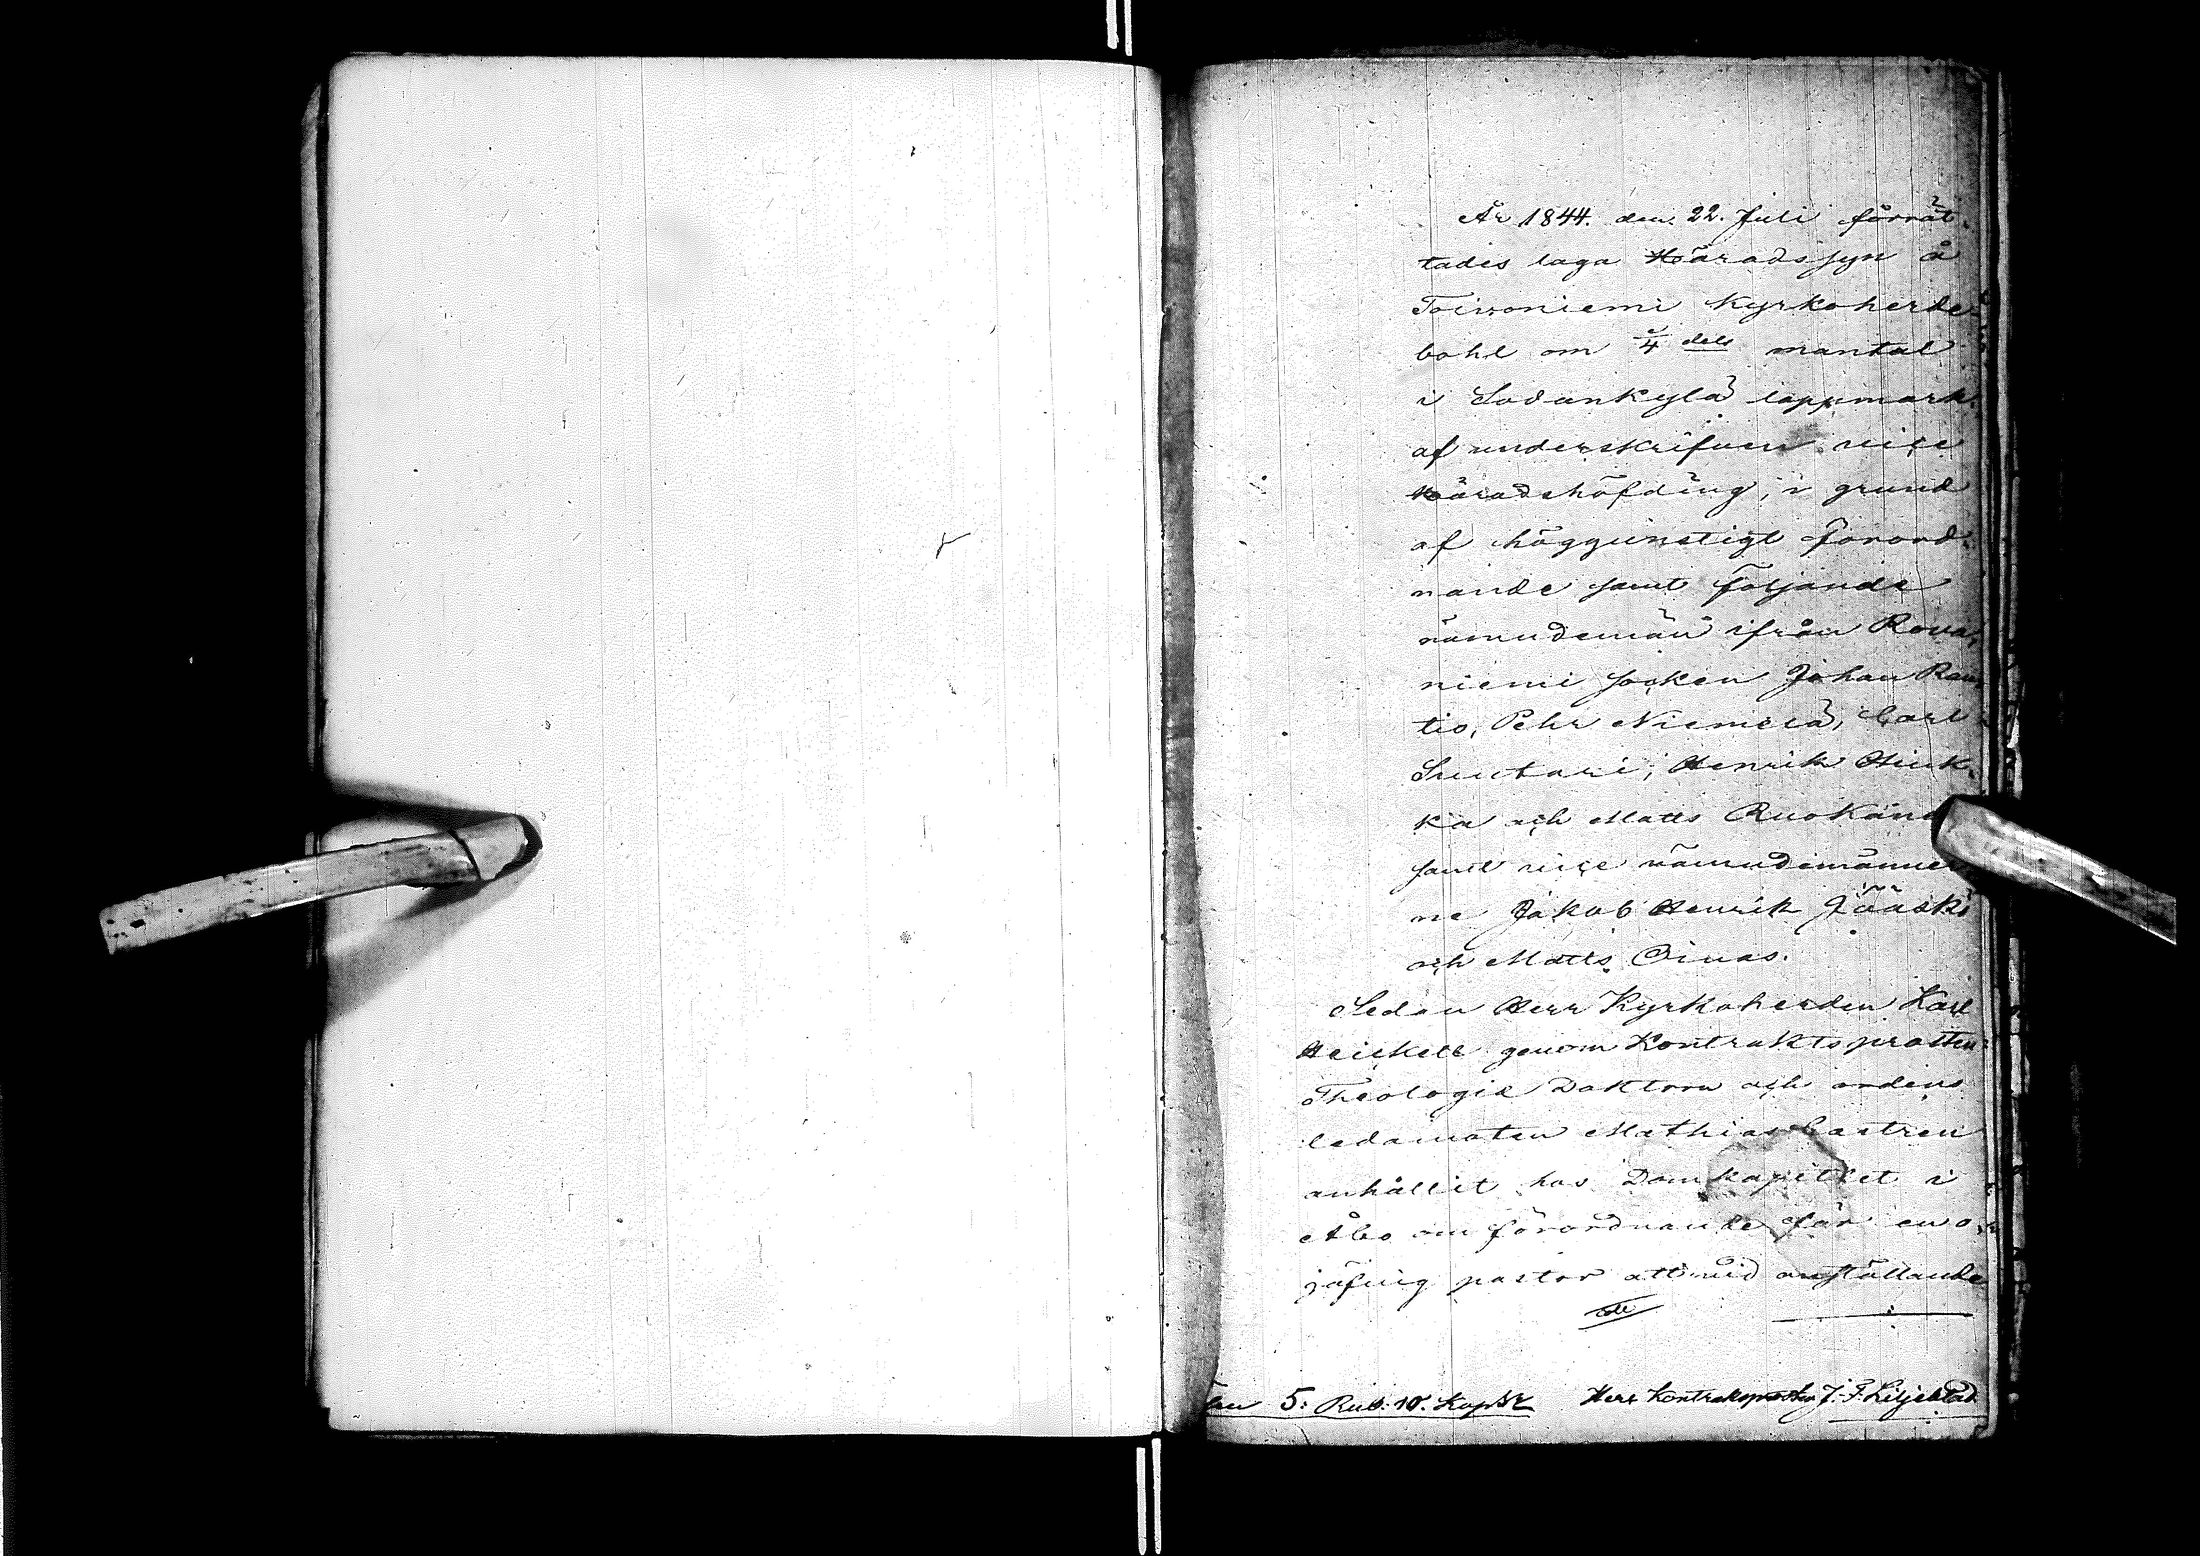 År 1844. den 22. Juli förrät-
tades laga Häradssyn å
Toivoniemi Kyrkoherde-
bohl om ¼ dels mantal
i Sodankylä lappmark
af underskrifven vice
häradshöfding, i grund
af höggunstigt förord-
nande samt följande
nämndemän ifrån Rova-
niemi socken Johan Rau-
tio, Pehr Niemelä, Carl
Suutari, Henrik Hiuk-
ka och Matts Ruokan
samt vice nämndemänner-
ne Jakob Henrik Jääskö
och Matts Oinas.
Sedan Herr Kyrkoherden Karl
Heickell genom Kontraktsprosten
Theologie Doktorn och ordens
ledamoten Mathias Castren
anhållit hos Domkapitlet i
Åbo om förordnande för en o-
jäfvig pastor att vid anställande
de
5: Rub: 10. Kop Sr Herr Kontraktsprosten J. F. Liljeblad